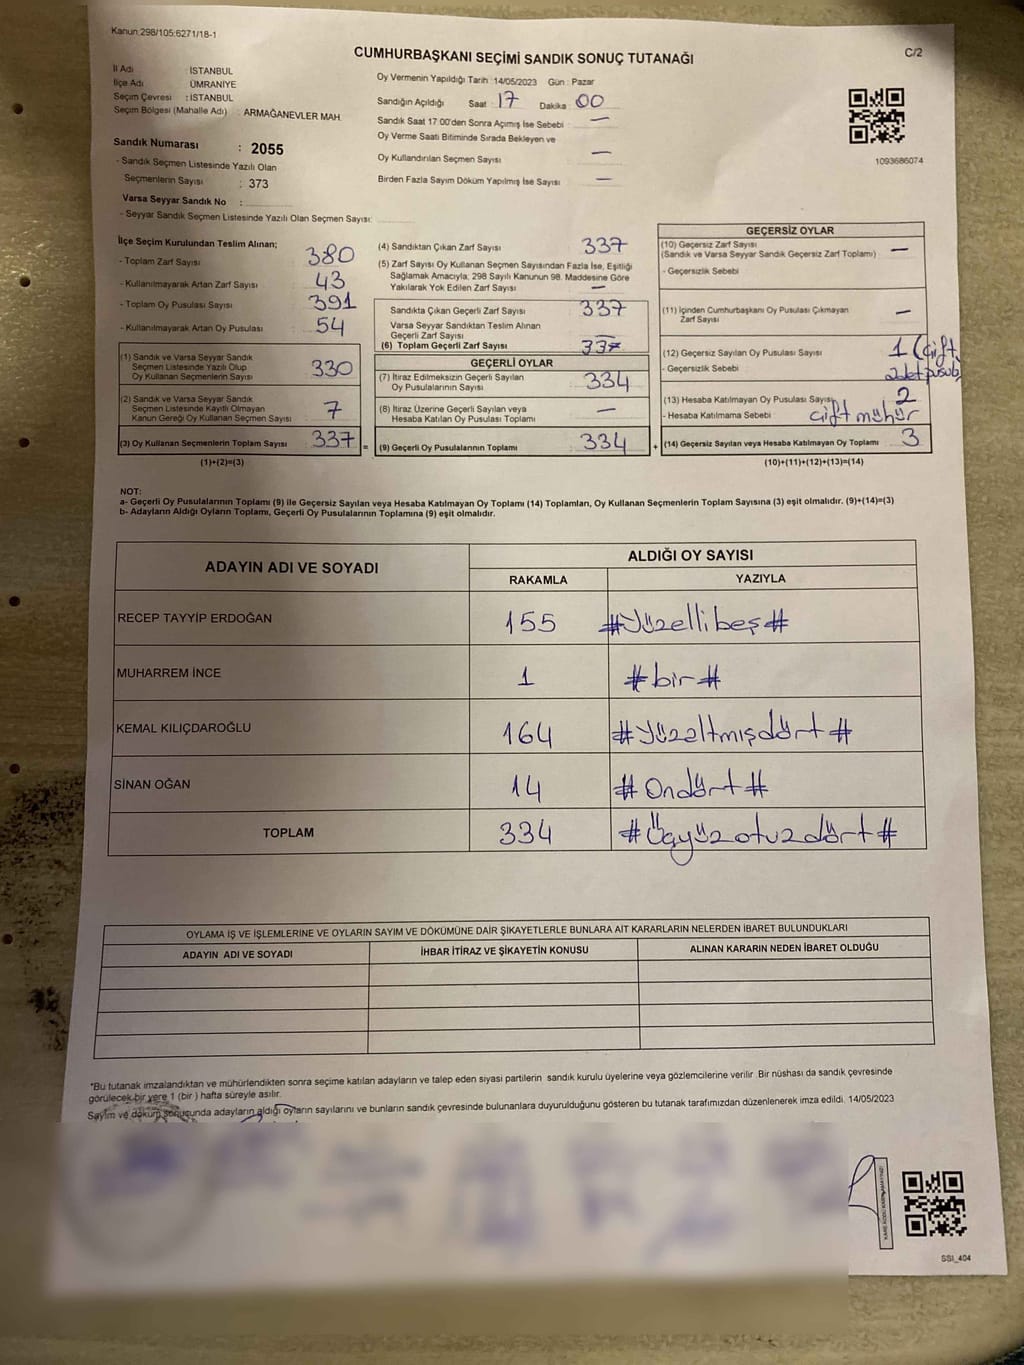 Kanun:298/105:6271/18-1
CUMHURBAŞKANI SEÇİMİ SANDIK SONUÇ TUTANAĞI
C/2
İl Adı : İSTANBUL
İlçe Adı : ÜMRANİYE
Seçim Çevresi : İSTANBUL
Seçim Bölgesi (Mahalle Adı) : ARMAĞANEVLER MAH.
Sandık Numarası : 2055
- Sandık Seçmen Listesinde Yazılı Olan
Seçmenlerin Sayısı : 373
Varsa Seyyar Sandık No :
- Seyyar Sandık Seçmen Listesinde Yazılı Olan Seçmen Sayısı:
Oy Vermenin Yapıldığı Tarih :14/05/2023 Gün : Pazar
Sandığın Açıldığı Saat : 17 Dakika : 00
Sandık Saat 17:00'den Sonra Açımış İse Sebebi : —
Oy Verme Saati Bitiminde Sırada Bekleyen ve
Oy Kullandırılan Seçmen Sayısı —
Birden Fazla Sayım Döküm Yapılmış İse Sayısı : —
1093686074
İlçe Seçim Kurulundan Teslim Alınan;
- Toplam Zarf Sayısı 380
- Kullanılmayarak Artan Zarf Sayısı : 43
- Toplam Oy Pusulası Sayısı 391
- Kullanılmayarak Artan Oy Pusulası : 54
(1) Sandık ve Varsa Seyyar Sandık
Seçmen Listesinde Yazılı Olup
Oy Kullanan Seçmenlerin Sayısı 330
(2) Sandık ve Varsa Seyyar Sandık
Seçmen Listesinde Kayıtlı Olmayan
Kanun Gereği Oy Kullanan Seçmen Sayısı 7
(3) Oy Kullanan Seçmenlerin Toplam Sayısı 337 =
(1)+(2)=(3)
(4) Sandıktan Çıkan Zarf Sayısı 337
(5) Zarf Sayısı Oy Kullanan Seçmen Sayısından Fazla İse, Eşitliği
Sağlamak Amacıyla, 298 Sayılı Kanunun 98. Maddesine Göre
Yakılarak Yok Edilen Zarf Sayısı —
Sandıkta Çıkan Geçerli Zarf Sayısı 337
Varsa Seyyar Sandıktan Teslim Alınan
Geçerli Zarf Sayısı —
(6) Toplam Geçerli Zarf Sayısı 337
GEÇERLİ OYLAR
(7) İtiraz Edilmeksizin Geçerli Sayılan
Oy Pusulalarının Sayısı 334
(8) İtiraz Üzerine Geçerli Sayılan veya
Hesaba Katılan Oy Pusulaları Toplamı —
(9) Geçerli Oy Pusulalarının Toplamı 334 +
GEÇERSİZ OYLAR
(10) Geçersiz Zarf Sayısı —
(Sandık ve Varsa Seyyar Sandık Geçersiz Zarf Toplamı)
- Geçersizlik Sebebi
(11) İçinden Cumhurbaşkanı Oy Pusulası Çıkmayan
Zarf Sayısı —
(12) Geçersiz Sayılan Oy Pusulası Sayısı 1 (çift
- Geçersizlik Sebebi adet pusula)
(13) Hesaba Katılmayan Oy Pusulası Sayısı 2
- Hesaba Katılmama Sebebi çift mühür
(14) Geçersiz Sayılan veya Hesaba Katılmayan Oy Toplamı 3
(10)+(11)+(12)+(13)=(14)
NOT:
a- Geçerli Oy Pusulalarının Toplamı (9) ile Geçersiz Sayılan veya Hesaba Katılmayan Oy Toplamı (14) Toplamları, Oy Kullanan Seçmenlerin Toplam Sayısına (3) eşit olmalıdır. (9)+(14)=(3)
b- Adayların Aldığı Oyların Toplamı, Geçerli Oy Pusulalarının Toplamına (9) eşit olmalıdır.
ADAYIN ADI VE SOYADI
ALDIĞI OY SAYISI
RAKAMLA YAZIYLA
RECEP TAYYİP ERDOĞAN 155 #Yüzellibeş#
MUHARREM İNCE 1 #bir#
KEMAL KILIÇDAROĞLU 164 #Yüzaltmışdört#
SİNAN OĞAN 14 #Ondört#
TOPLAM 334 #Üçyüzotuzdört#
OYLAMA İŞ VE İŞLEMLERİNE VE OYLARIN SAYIM VE DÖKÜMÜNE DAİR ŞİKAYETLERLE BUNLARA AİT KARARLARIN NELERDEN İBARET BULUNDUKLARI
ADAYIN ADI VE SOYADI İHBAR İTİRAZ VE ŞİKAYETİN KONUSU ALINAN KARARIN NEDEN İBARET OLDUĞU
*Bu tutanak imzalandıktan ve mühürlendikten sonra seçime katılan adayların ve talep eden siyasi partilerin sandık kurulu üyelerine veya gözlemcilerine verilir. Bir nüshası da sandık çevresinde
görülecek bir yere 1 (bir ) hafta süreyle asılır.
Sayım ve döküm sonucunda adayların aldığı oyların sayılarını ve bunların sandık çevresinde bulunanlara duyurulduğunu gösteren bu tutanak tarafımızdan düzenlenerek imza edildi. 14/05/2023
SSI_404